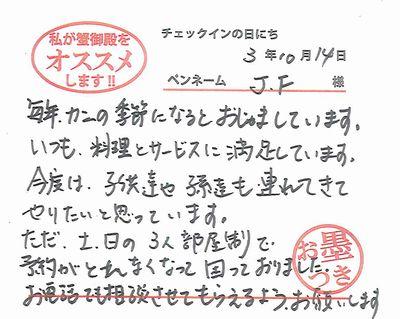 私が蟹御殿を
オススメ
します!!
チェックインの日にち
3年10月14日
ペンネーム J.F 様
毎年、カニの季節になるとおじゃましています。
いつも、料理とサービスに満足しています。
今度は、子供達や孫達も連れてきて
やりたいと思っています。
ただ、土、日の3人部屋制で、
予約がとれなくなって困っておりました。
お電話でも相談させてもらえるようお願いします
お墨つき